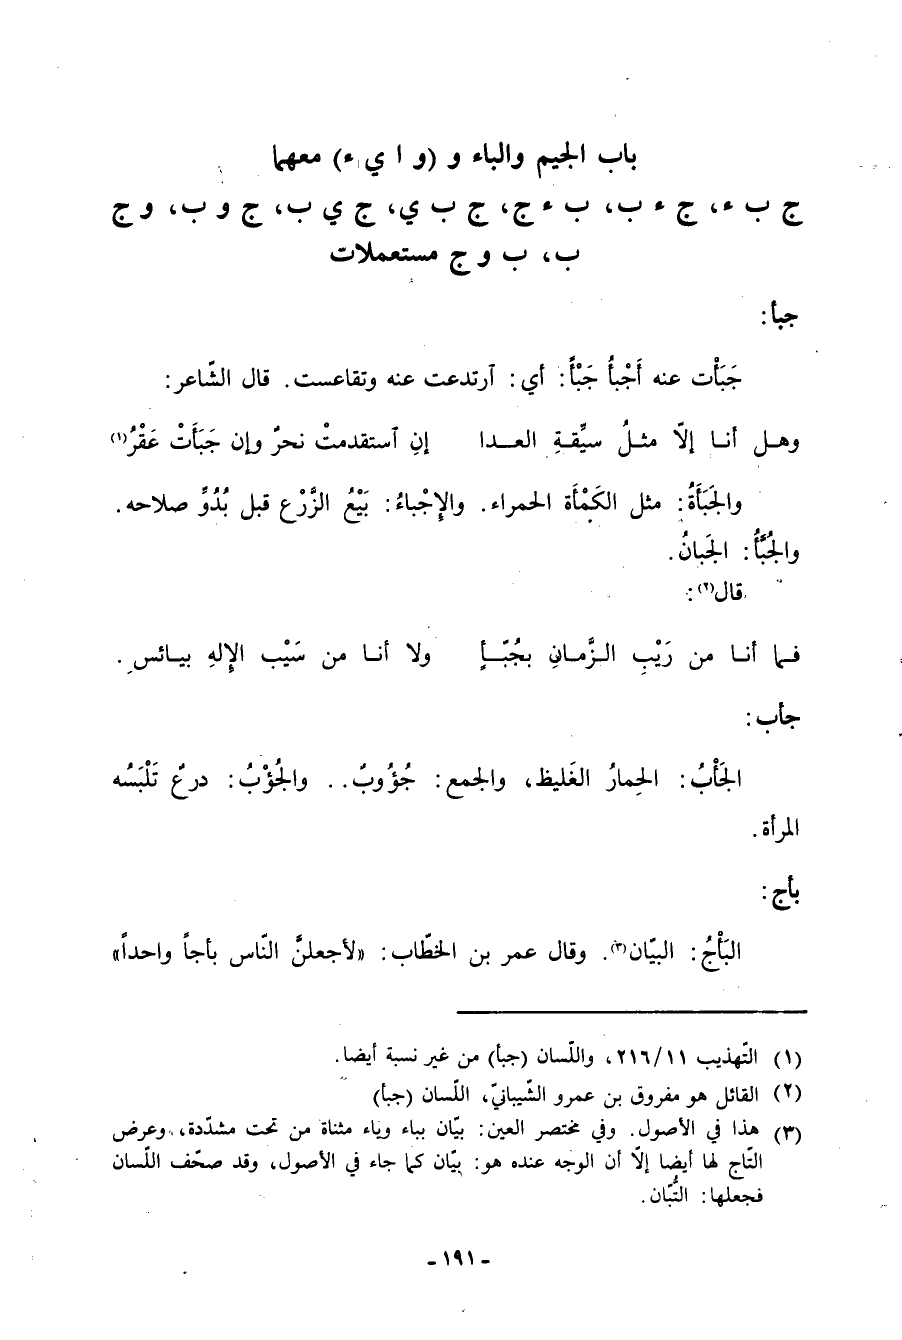 باب الجيم والباء و (و ا ي ء) معهما
ج ب ء، ج ء ب، ب ء ج، ج ب ي، ج ي ب، ج و ب، و ج
ب، ب و ج مستعملات
جبأ:
جَبَأْت عنه أَجْبأُ جَبْأً: أي: آرتدعت عنه وتقاعست. قال الشّاعر:
وهـل أنـا إلاّ مثـلُ سيِّقـةِ العـدا إنِ آستقدمتْ نحرٌ وإن جَبَأَتْ عَقْرُ(١)
والجَبَأَةُ: مثل الكَمْأة الحمراء. والإِجْباءُ: بَيْعُ الزَّرْع قبل بُدُوِّ صلاحه.
والجُبَّأُ: الجَبانُ.
قال(٢):
فـما أنـا من رَيْبِ الـزَّمـانِ بجُبّـأٍ ولا أنـا من سَيْب الإلهِ بيـائس.
جأب:
الجَأْبُ: الحِمارُ الغَليظ، والجمع: جُؤُوبٌ.. والجُؤْبُ: درعٌ تَلْبَسُه
المرأة.
بأج:
البَأْجُ: البيّان(٣). وقال عمر بن الخطّاب: «لأجعلنَّ النّاس بأجاً واحداً»
(١) التّهذيب ٢١٦/١١، واللّسان (جبأ) من غير نسبة أيضا.
(٢) القائل هو مفروق بن عمرو الشّيبانيّ، اللّسان (جبأ)
(٣) هذا في الأصول. وفي مختصر العين: بيّان بباء وياء مثناة من تحت مشدّدة، وعرض
التّاج لها أيضا إلاّ أن الوجه عنده هو: بيّان كما جاء في الأصول، وقد صحّف اللّسان
فجعلها: التُبّان.
- ١٩١ -